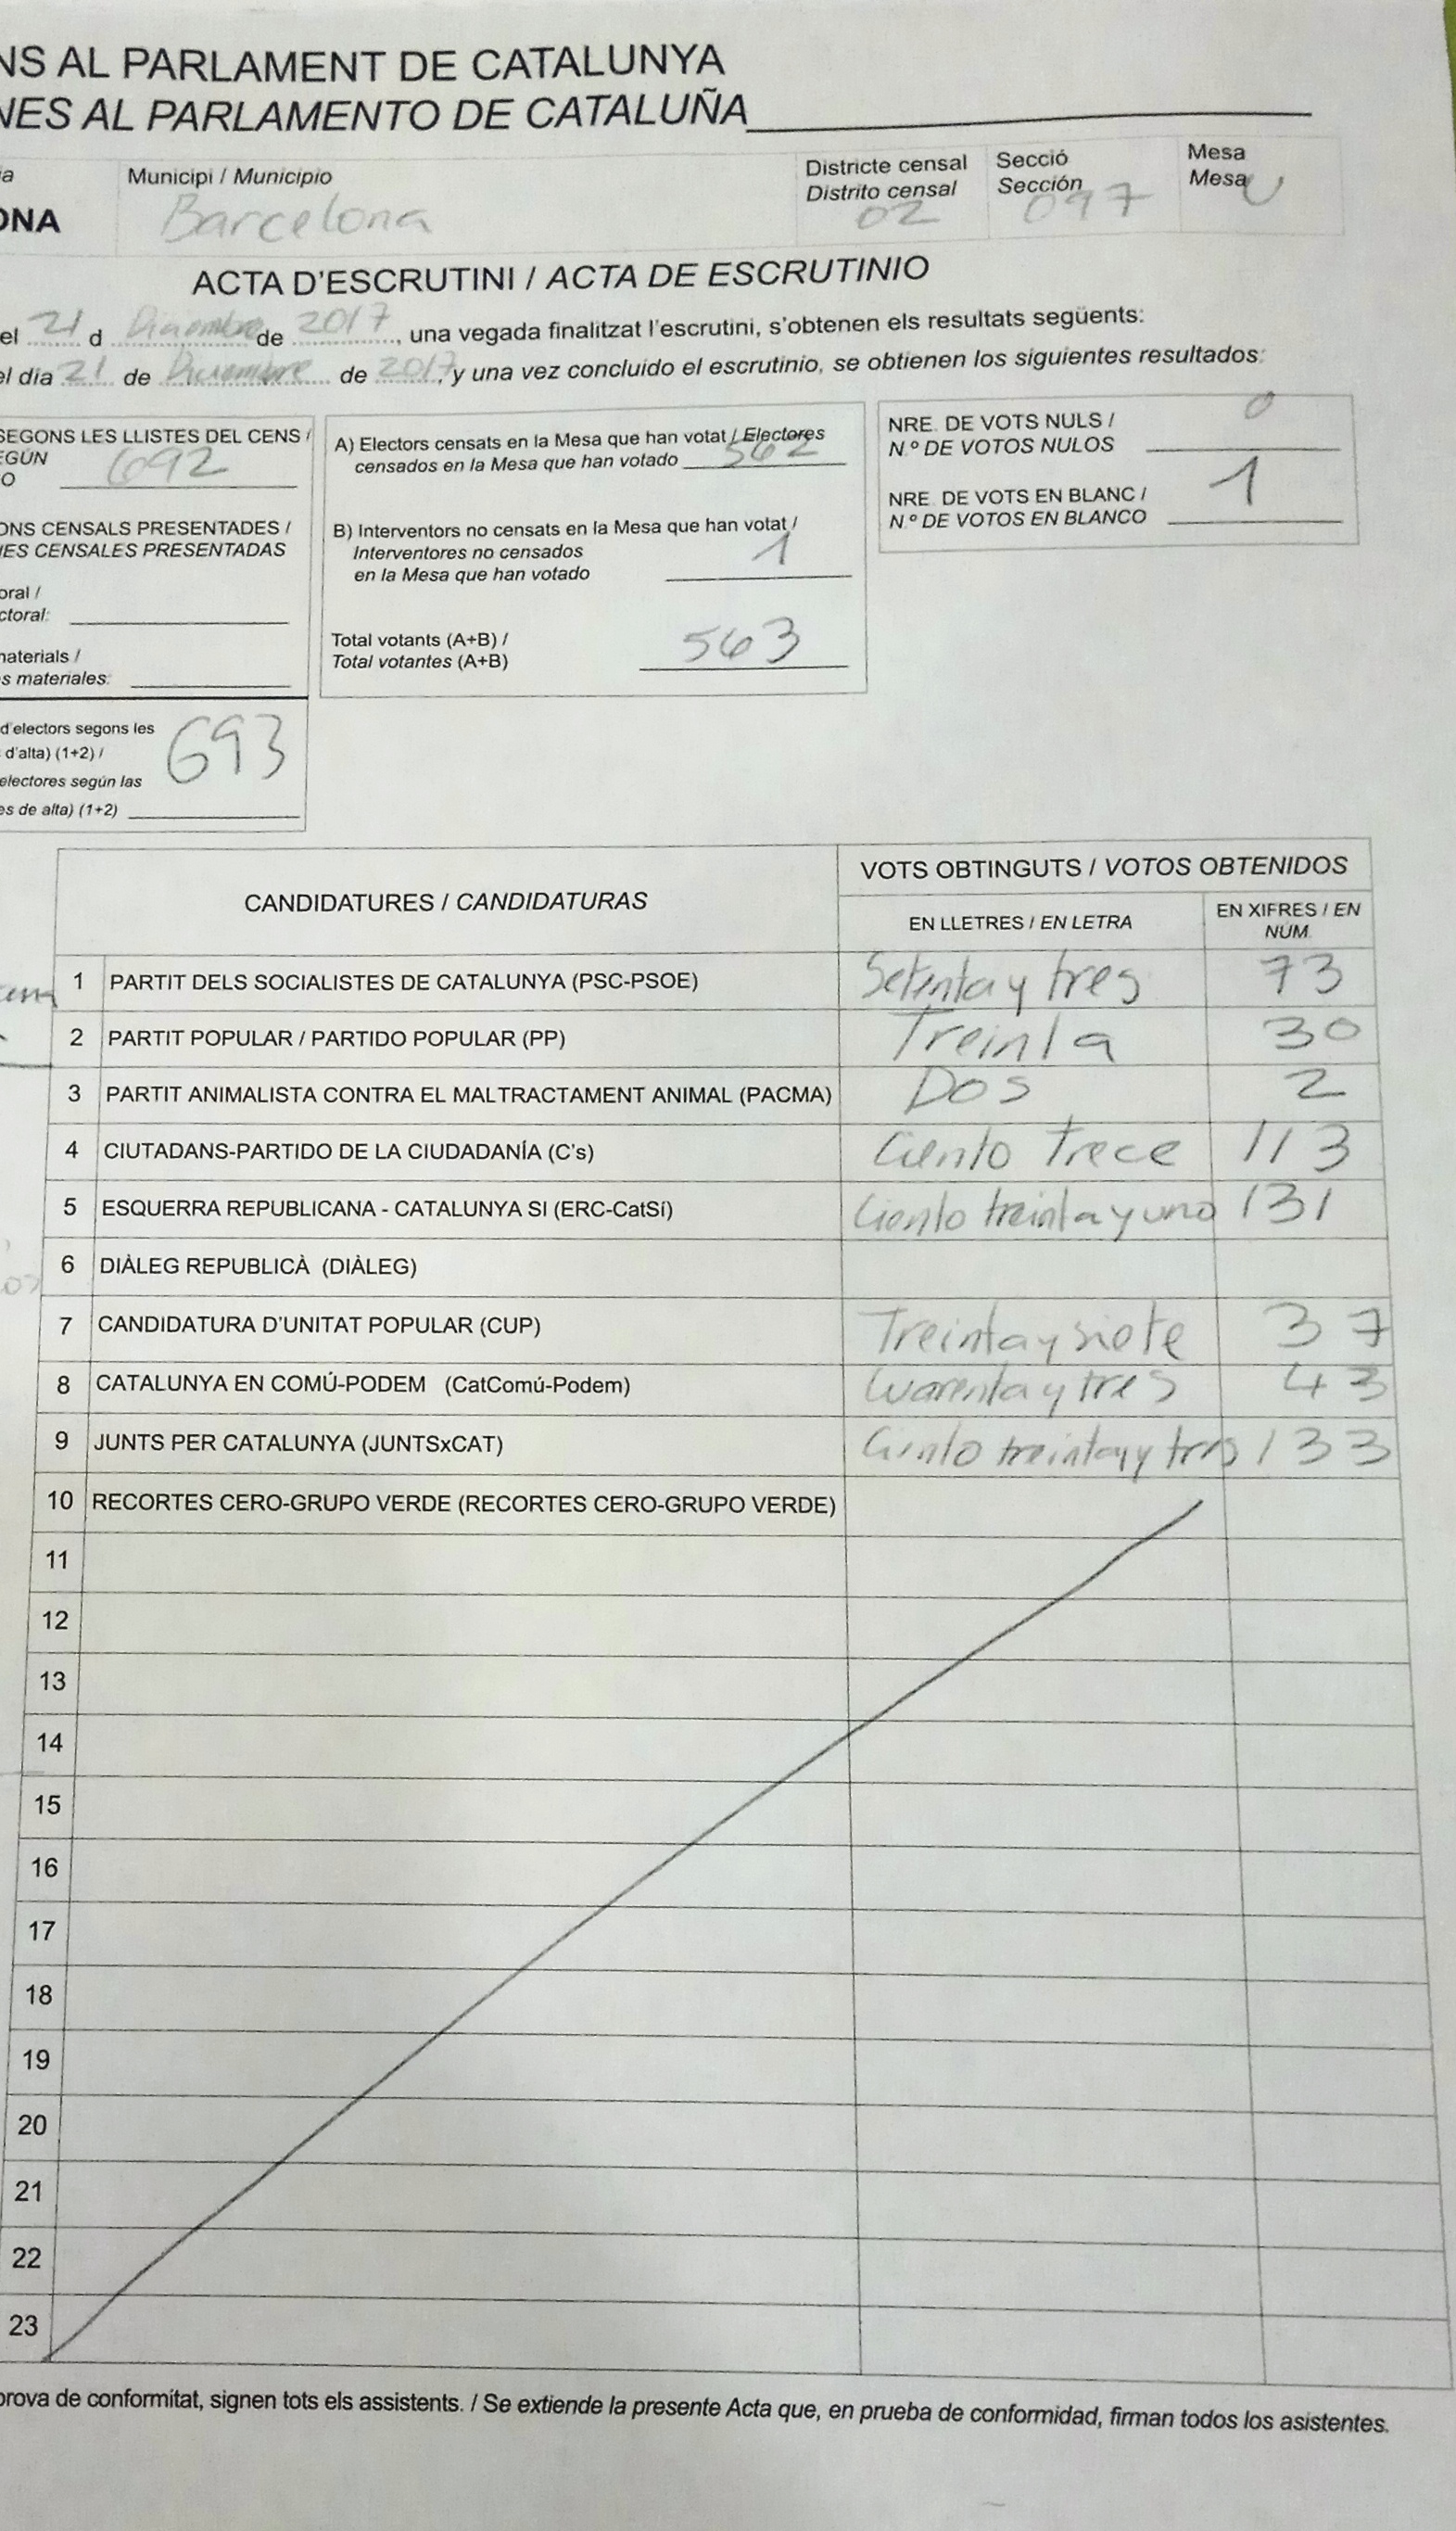 NS AL PARLAMENT DE CATALUNYA
NES AL PARLAMENTO DE CATALUÑA
Municipi / Municipio
Districte censal
Distrito censal
Secció
Sección
Mesa
Mesa
ONA
Barcelona
02
097
U
ACTA D'ESCRUTINI / ACTA DE ESCRUTINIO
el 21 d Diciembre de 2017, una vegada finalitzat l'escrutini, s'obtenen els resultats següents:
el dia 21 de Diciembre de 2017, y una vez concluido el escrutinio, se obtienen los siguientes resultados:
SEGONS LES LLISTES DEL CENS /
EGÚN
O 692
ONS CENSALS PRESENTADES /
NES CENSALES PRESENTADAS
oral /
ctoral:
materials /
s materiales:
d'electors segons les
d'alta) (1+2) /
electores según las
es de alta) (1+2)
693
A) Electors censats en la Mesa que han votat / Electores
censados en la Mesa que han votado 562
B) Interventors no censats en la Mesa que han votat /
Interventores no censados
en la Mesa que han votado 1
Total votants (A+B) /
Total votantes (A+B) 563
NRE. DE VOTS NULS /
N.º DE VOTOS NULOS 0
NRE. DE VOTS EN BLANC /
N.º DE VOTOS EN BLANCO 1
CANDIDATURES / CANDIDATURAS
VOTS OBTINGUTS / VOTOS OBTENIDOS
EN LLETRES / EN LETRA
EN XIFRES / EN
NÚM.
1 PARTIT DELS SOCIALISTES DE CATALUNYA (PSC-PSOE) Setenta y tres 73
2 PARTIT POPULAR / PARTIDO POPULAR (PP) Treinta 30
3 PARTIT ANIMALISTA CONTRA EL MALTRACTAMENT ANIMAL (PACMA) Dos 2
4 CIUTADANS-PARTIDO DE LA CIUDADANÍA (C's) Ciento Trece 113
5 ESQUERRA REPUBLICANA - CATALUNYA SI (ERC-CatSí) Ciento treinta y uno 131
6 DIÀLEG REPUBLICÀ (DIÀLEG)
7 CANDIDATURA D'UNITAT POPULAR (CUP) Treinta y siete 37
8 CATALUNYA EN COMÚ-PODEM (CatComú-Podem) Cuarenta y tres 43
9 JUNTS PER CATALUNYA (JUNTSxCAT) Ciento treinta y tres 133
10 RECORTES CERO-GRUPO VERDE (RECORTES CERO-GRUPO VERDE)
11
12
13
14
15
16
17
18
19
20
21
22
23
prova de conformitat, signen tots els assistents. / Se extiende la presente Acta que, en prueba de conformidad, firman todos los asistentes.